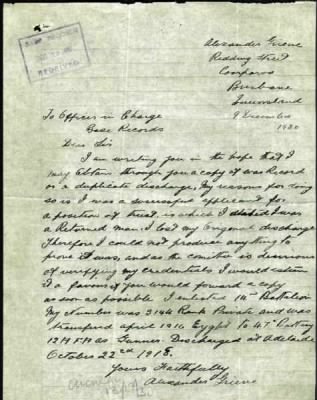 BASE RECORDS
RECEIVED
Alexander Grieve
Redding Street
Coorparoo
Brisbane
Queensland
9 December
1920
To Officer in Charge
Base Records
Dear Sir
I am writing you in the hope that I
may obtain through you a copy of War Record
or a duplicate discharge. My reasons for doing
so is I was a successful applicant for
a position of trust, in which I stated I was
a Returned man. I lost my original discharge
Therefore I could not produce anything to
prove it was, and as the comitee is desirous
of verifying my credentials I would esteem
it a favour if you would forward a copy
as soon as possible. I enlisted 14th Battalion
My number was 3144 Rank Private and was
transferred april 1916 Egypt to 47th Battery
12th A F A as Gunner. Discharged at Adelaide
October 22nd 1918.
Yours Faithfully
Alexander Grieve